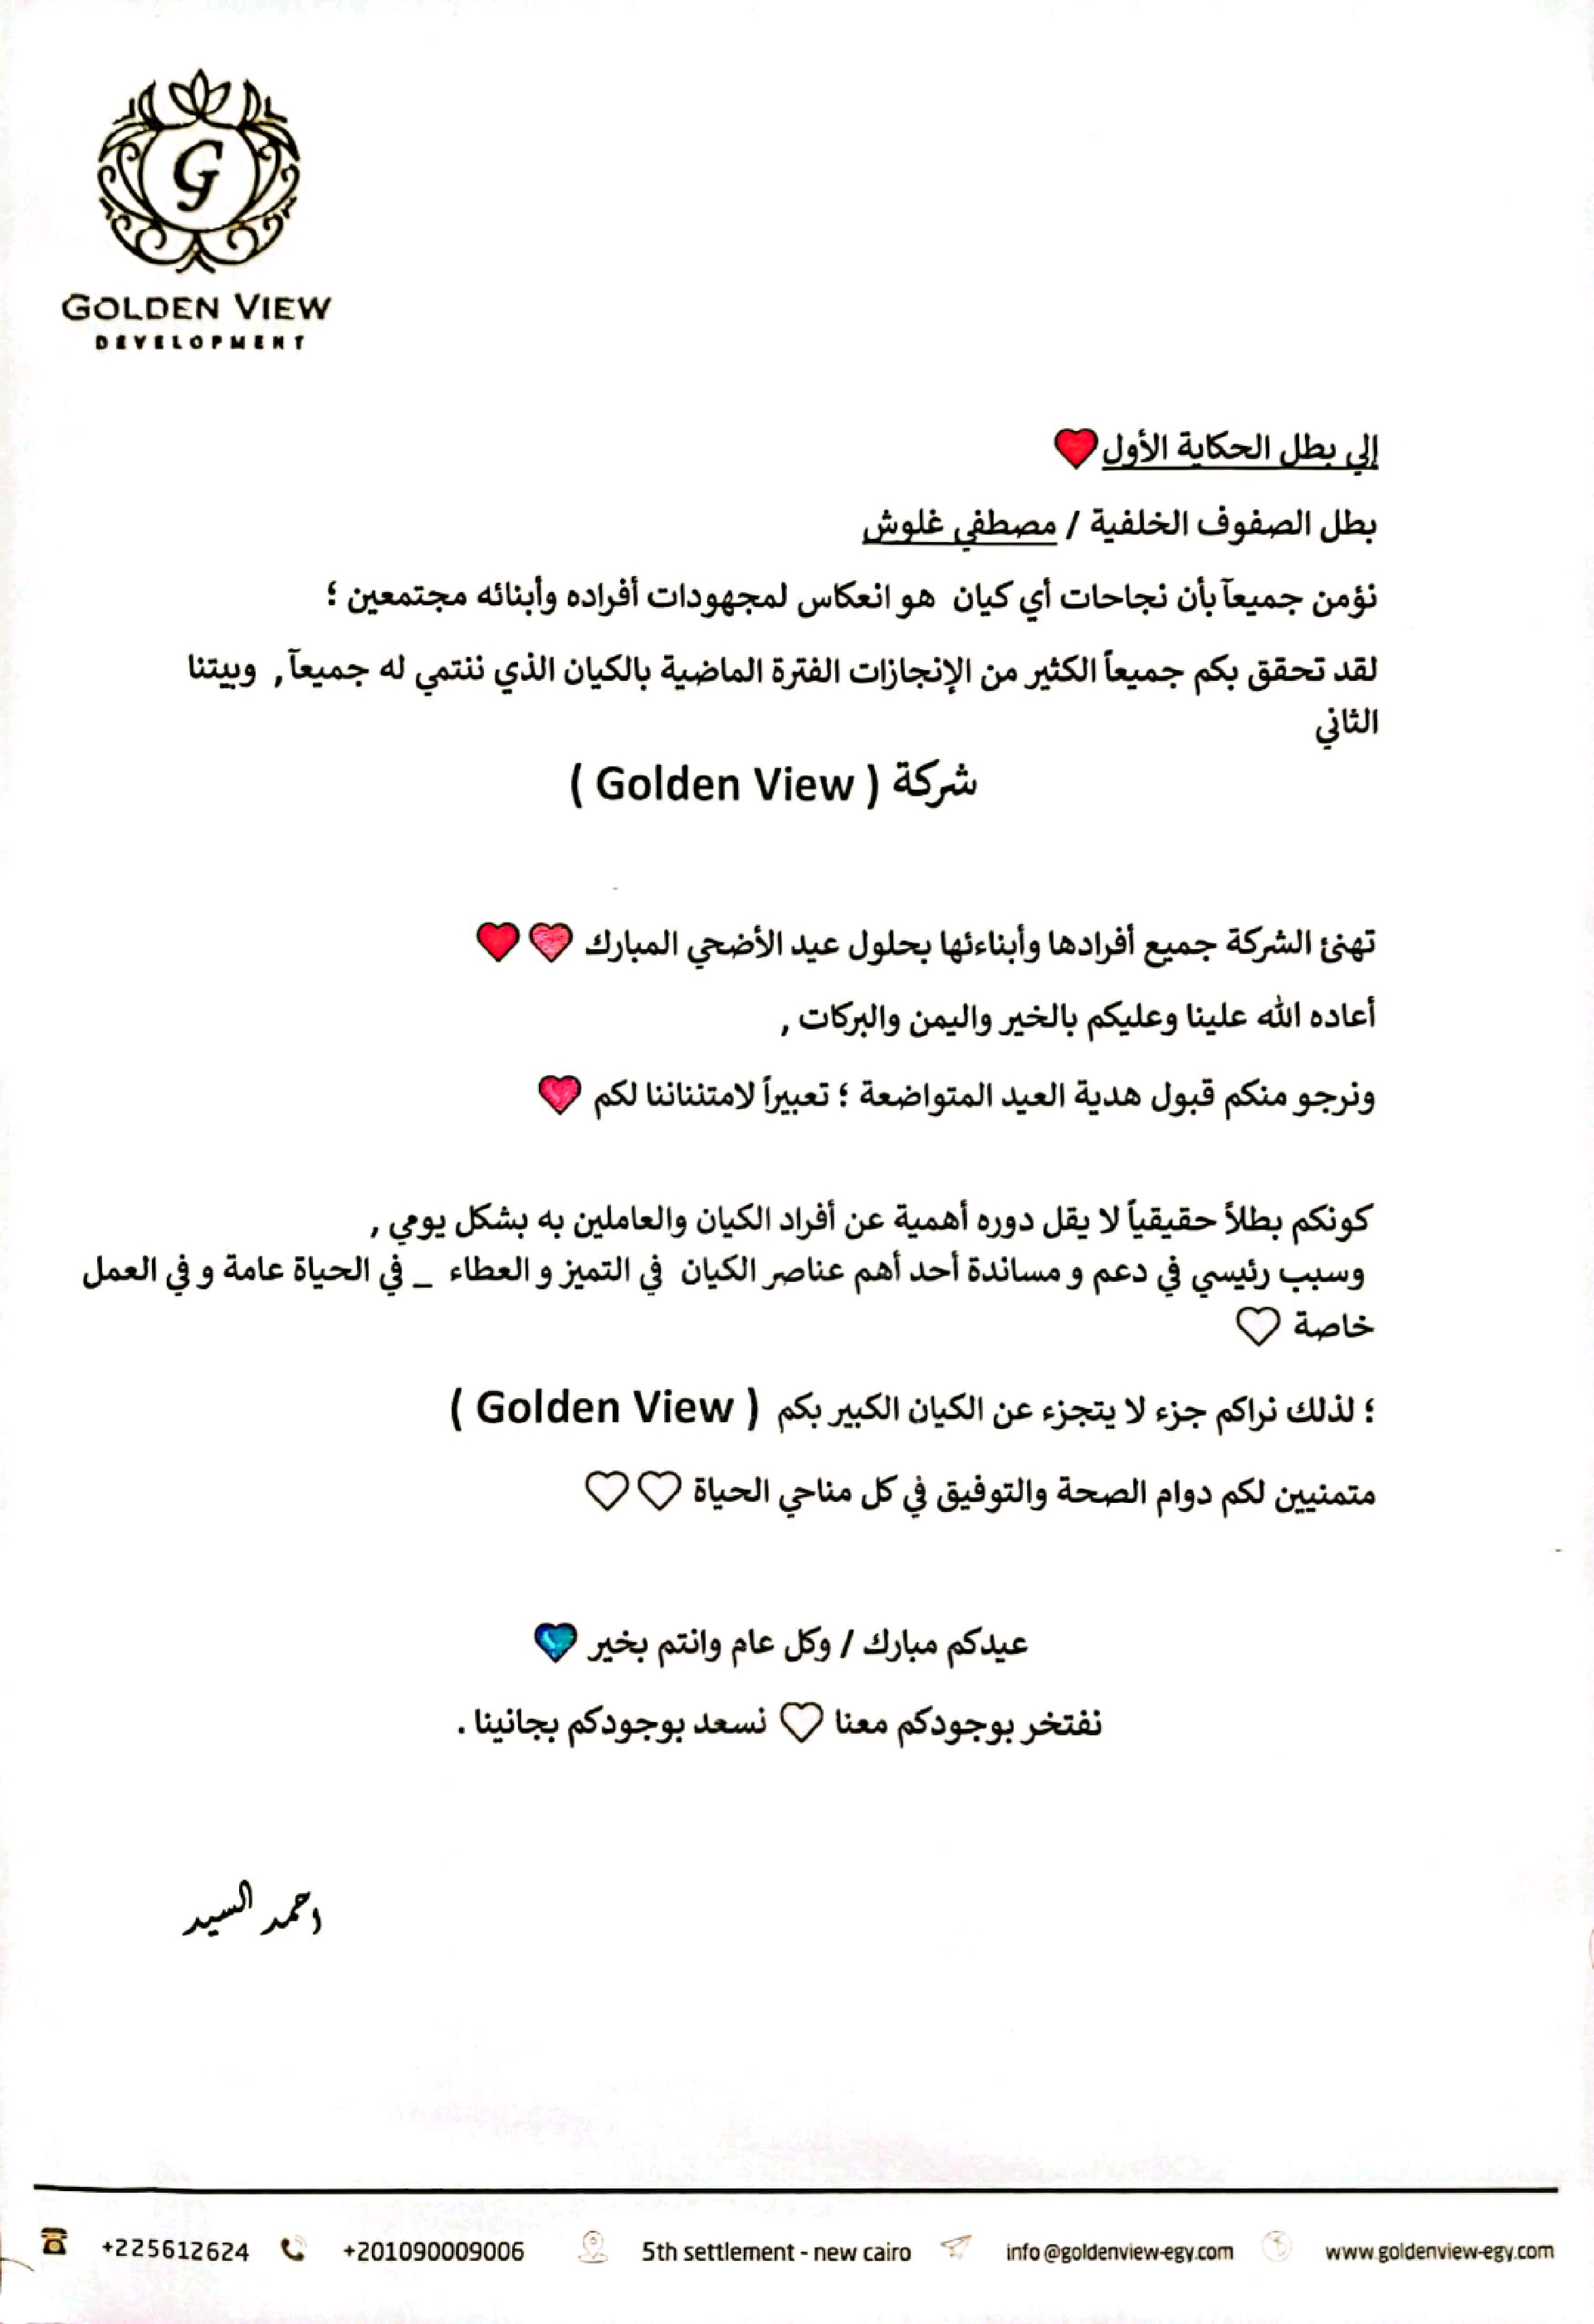 G
GOLDEN VIEW
DEVELOPMENT
إلي بطل الحكاية الأول❤
بطل الصفوف الخلفية / مصطفي غلوش
نؤمن جميعآ بأن نجاحات أي كيان هو انعكاس لمجهودات أفراده وأبنائه مجتمعين ؛
لقد تحقق بكم جميعاً الكثير من الإنجازات الفترة الماضية بالكيان الذي ننتمي له جميعآ , وبيتنا
الثاني
شركة ( Golden View )
تهنئ الشركة جميع أفرادها وأبناءئها بحلول عيد الأضحي المبارك
أعاده الله علينا وعليكم بالخير واليمن والبركات ,
ونرجو منكم قبول هدية العيد المتواضعة ؛ تعبيراً لامتنناننا لكم
كونكم بطلاً حقيقياً لا يقل دوره أهمية عن أفراد الكيان والعاملين به بشكل يومي ,
وسبب رئيسي في دعم و مساندة أحد أهم عناصر الكيان في التميز و العطاء _ في الحياة عامة و في العمل
خاصة ♡
؛ لذلك نراكم جزء لا يتجزء عن الكيان الكبير بكم ( Golden View )
متمنيين لكم دوام الصحة والتوفيق في كل مناحي الحياة ♡♡
عيدكم مبارك / وكل عام وانتم بخير
نفتخر بوجودكم معنا ♡ نسعد بوجودكم بجانينا .
احمد السيد
+225612624 +201090009006 5th settlement - new cairo info@goldenview-egy.com www.goldenview-egy.com